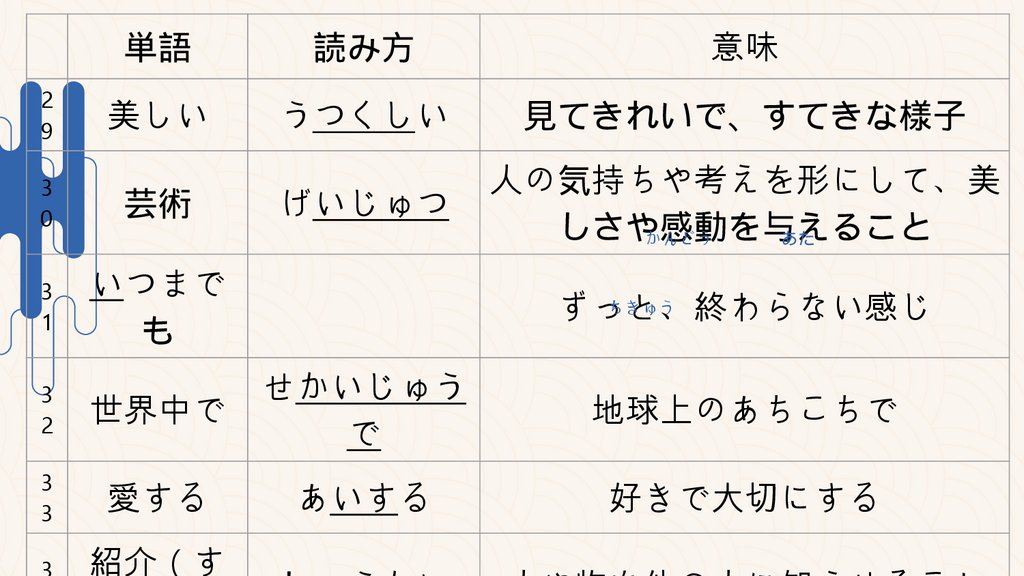 単語 読み方 意味
29 美しい うつくしい 見てきれいで、すてきな様子
30 芸術 げいじゅつ 人の気持ちや考えを形にして、美
しさや感動を与えること
かんどう あた
31 いつまで
も
ずっと、終わらない感じ
ちきゅう
32 世界中で せかいじゅう
で
地球上のあちこちで
33 愛する あいする 好きで大切にする
3 紹介(す